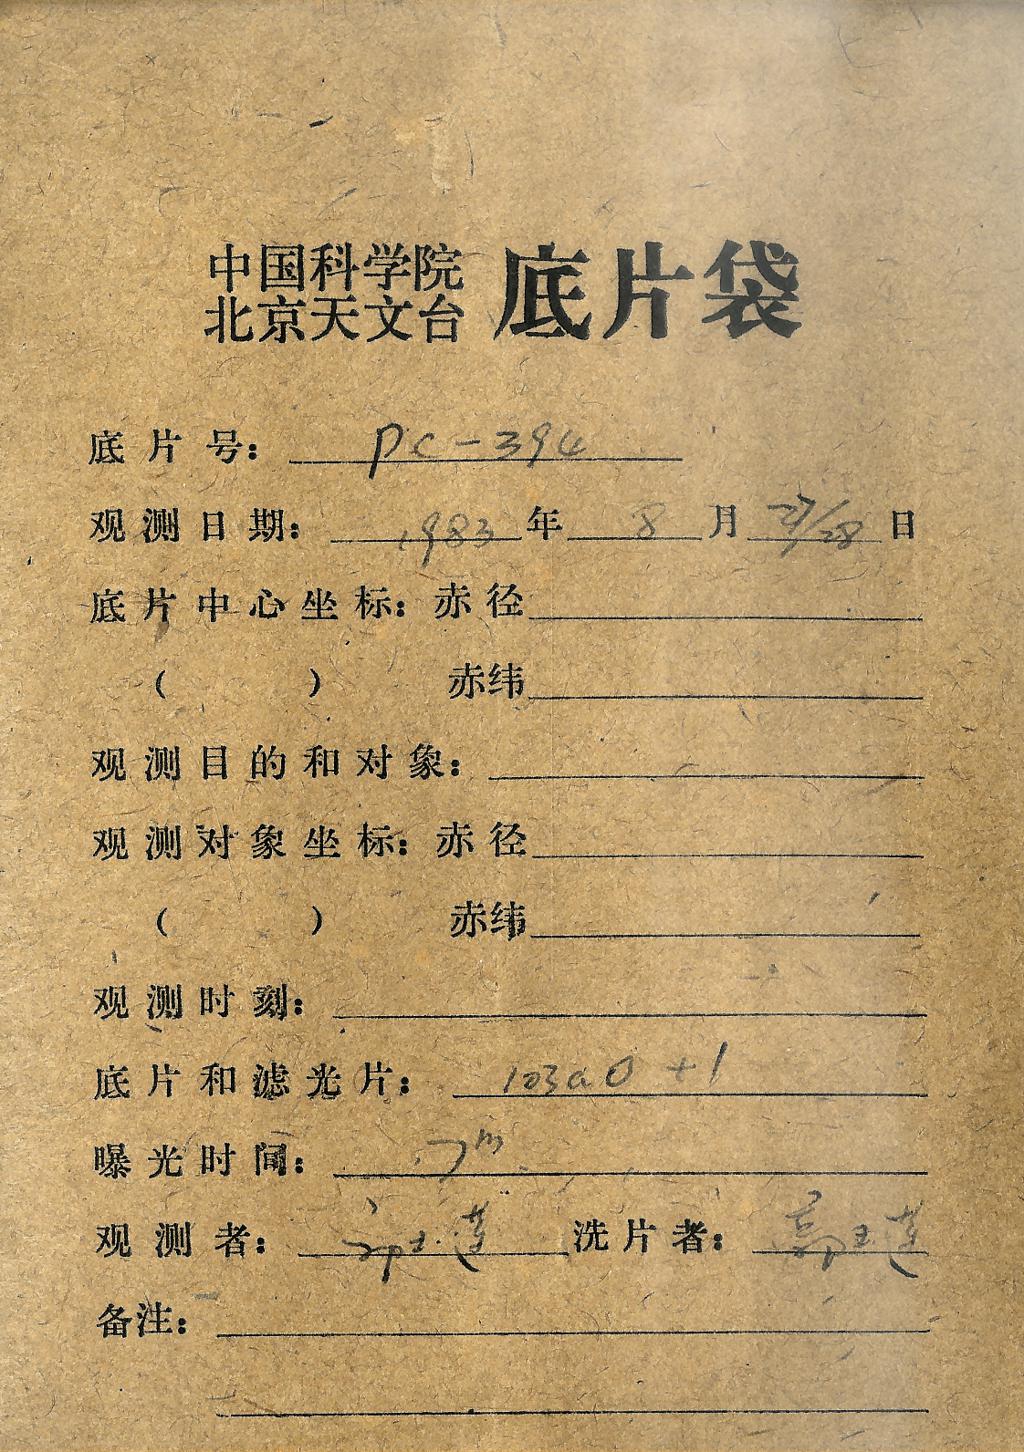 中国科学院
北京天文台 底片袋
底片号: PC-394
观测日期: 1983年 8月 27/28日
底片中心坐标: 赤径
( ) 赤纬
观测目的和对象:
观测对象坐标: 赤径
( ) 赤纬
观测时刻:
底片和滤光片: 103aO +1
曝光时间: 7m
观测者: 郭玉莲 洗片者: 郭玉莲
备注: